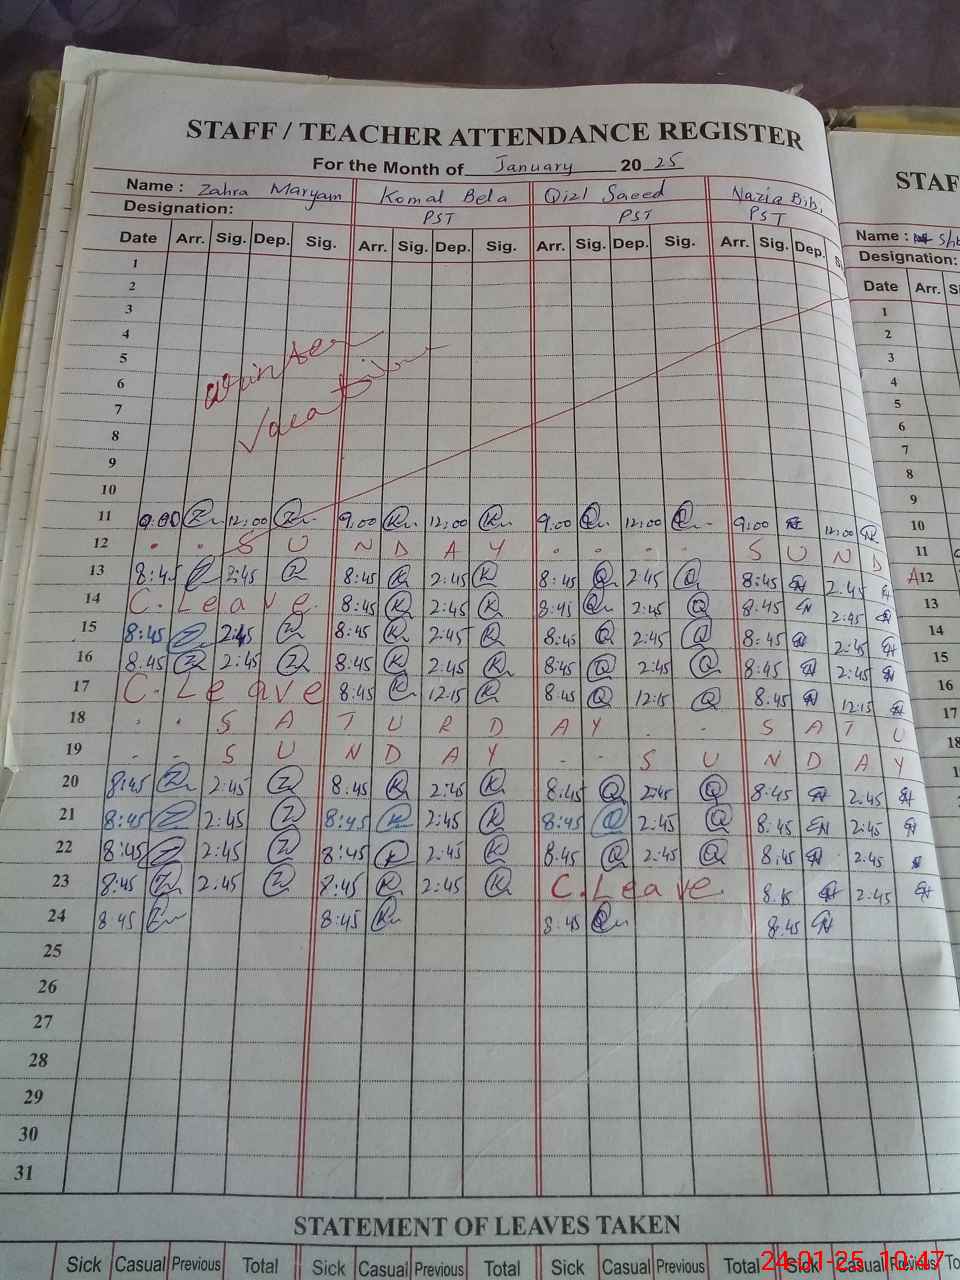 STAFF / TEACHER ATTENDANCE REGISTER
For the Month of January 2025
Name : Zahra Maryam Komal Bela Qizl Saeed Nazia Bibi
Designation: PST PST PST
Date Arr. Sig. Dep. Sig. Arr. Sig. Dep. Sig. Arr. Sig. Dep. Sig. Arr. Sig. Dep.
1
2
3
4
5
6
7
8
9
10
Winter
Vacation
11 9.00 Z 12:00 Z 9.00 K 12:00 K 9.00 Q 12:00 Q 9:00 12:00
12 . . S U N D A Y . . . . S U N D
13 8:45 2:45 Z 8:45 K 2:45 K 8:45 Q 2:45 Q 8:45 2.45
14 C. Leave. 8:45 K 2:45 K 8:45 Q 2:45 Q 8:45 2:45
15 8:45 Z 2:45 Z 8:45 K 2:45 K 8:45 Q 2:45 Q 8:45 2:45
16 8.45 Z 2:45 Z 8:45 K 2:45 K 8:45 Q 2:45 Q 8:45 2:45
17 C. Leave 8:45 K 12:15 K 8:45 Q 12:15 Q 8.45 12:15
18 . . S A T U R D A Y . . S A T U
19 . . S U N D A Y . . S U N D A Y
20 8:45 Z 2:45 Z 8.45 K 2:45 K 8:45 Q 2:45 Q 8:45 2.45
21 8:45 Z 2:45 Z 8:45 K 2:45 K 8:45 Q 2:45 Q 8.45 2:45
22 8:45 Z 2:45 Z 8:45 K 2:45 K 8.45 Q 2:45 Q 8:45 2:45
23 8:45 Z 2:45 Z 8:45 K 2:45 K C. Leave. 8.45 2:45
24 8:45 Z 8:45 K 8:45 Q 8.45
25
26
27
28
29
30
31
STATEMENT OF LEAVES TAKEN
Sick Casual Previous Total Sick Casual Previous Total Sick Casual Previous Total Sick Casual Previous
STAF
Name :
Designation:
Date Arr.
1
2
3
4
5
6
7
8
9
10
11
12
13
14
15
16
17
18
24-01-25 10:47